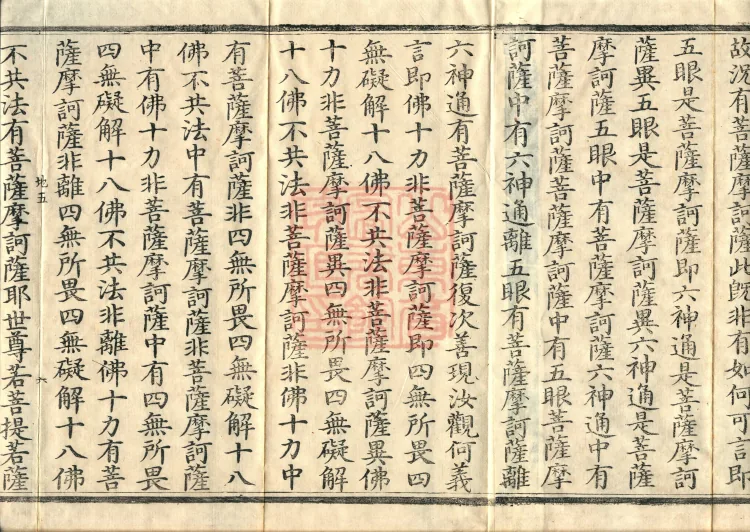 故況有菩薩摩訶薩此既非有如何可言即
五眼是菩薩摩訶薩即六神通是菩薩摩訶
薩異五眼是菩薩摩訶薩異六神通是菩薩
摩訶薩五眼中有菩薩摩訶薩六神通中有
菩薩摩訶薩菩薩摩訶薩中有五眼菩薩摩
訶薩中有六神通離五眼有菩薩摩訶薩離
六神通有菩薩摩訶薩復次善現汝觀何義
言即佛十力非菩薩摩訶薩即四無所畏四
無礙解十八佛不共法非菩薩摩訶薩異佛
十力非菩薩摩訶薩異四無所畏四無礙解
十八佛不共法非菩薩摩訶薩非佛十力中
有菩薩摩訶薩非四無所畏四無礙解十八
佛不共法中有菩薩摩訶薩非菩薩摩訶薩
中有佛十力非菩薩摩訶薩中有四無所畏
四無礙解十八佛不共法非離佛十力有菩
薩摩訶薩非離四無所畏四無礙解十八佛
地五 六
不共法有菩薩摩訶薩耶世尊若菩提若薩